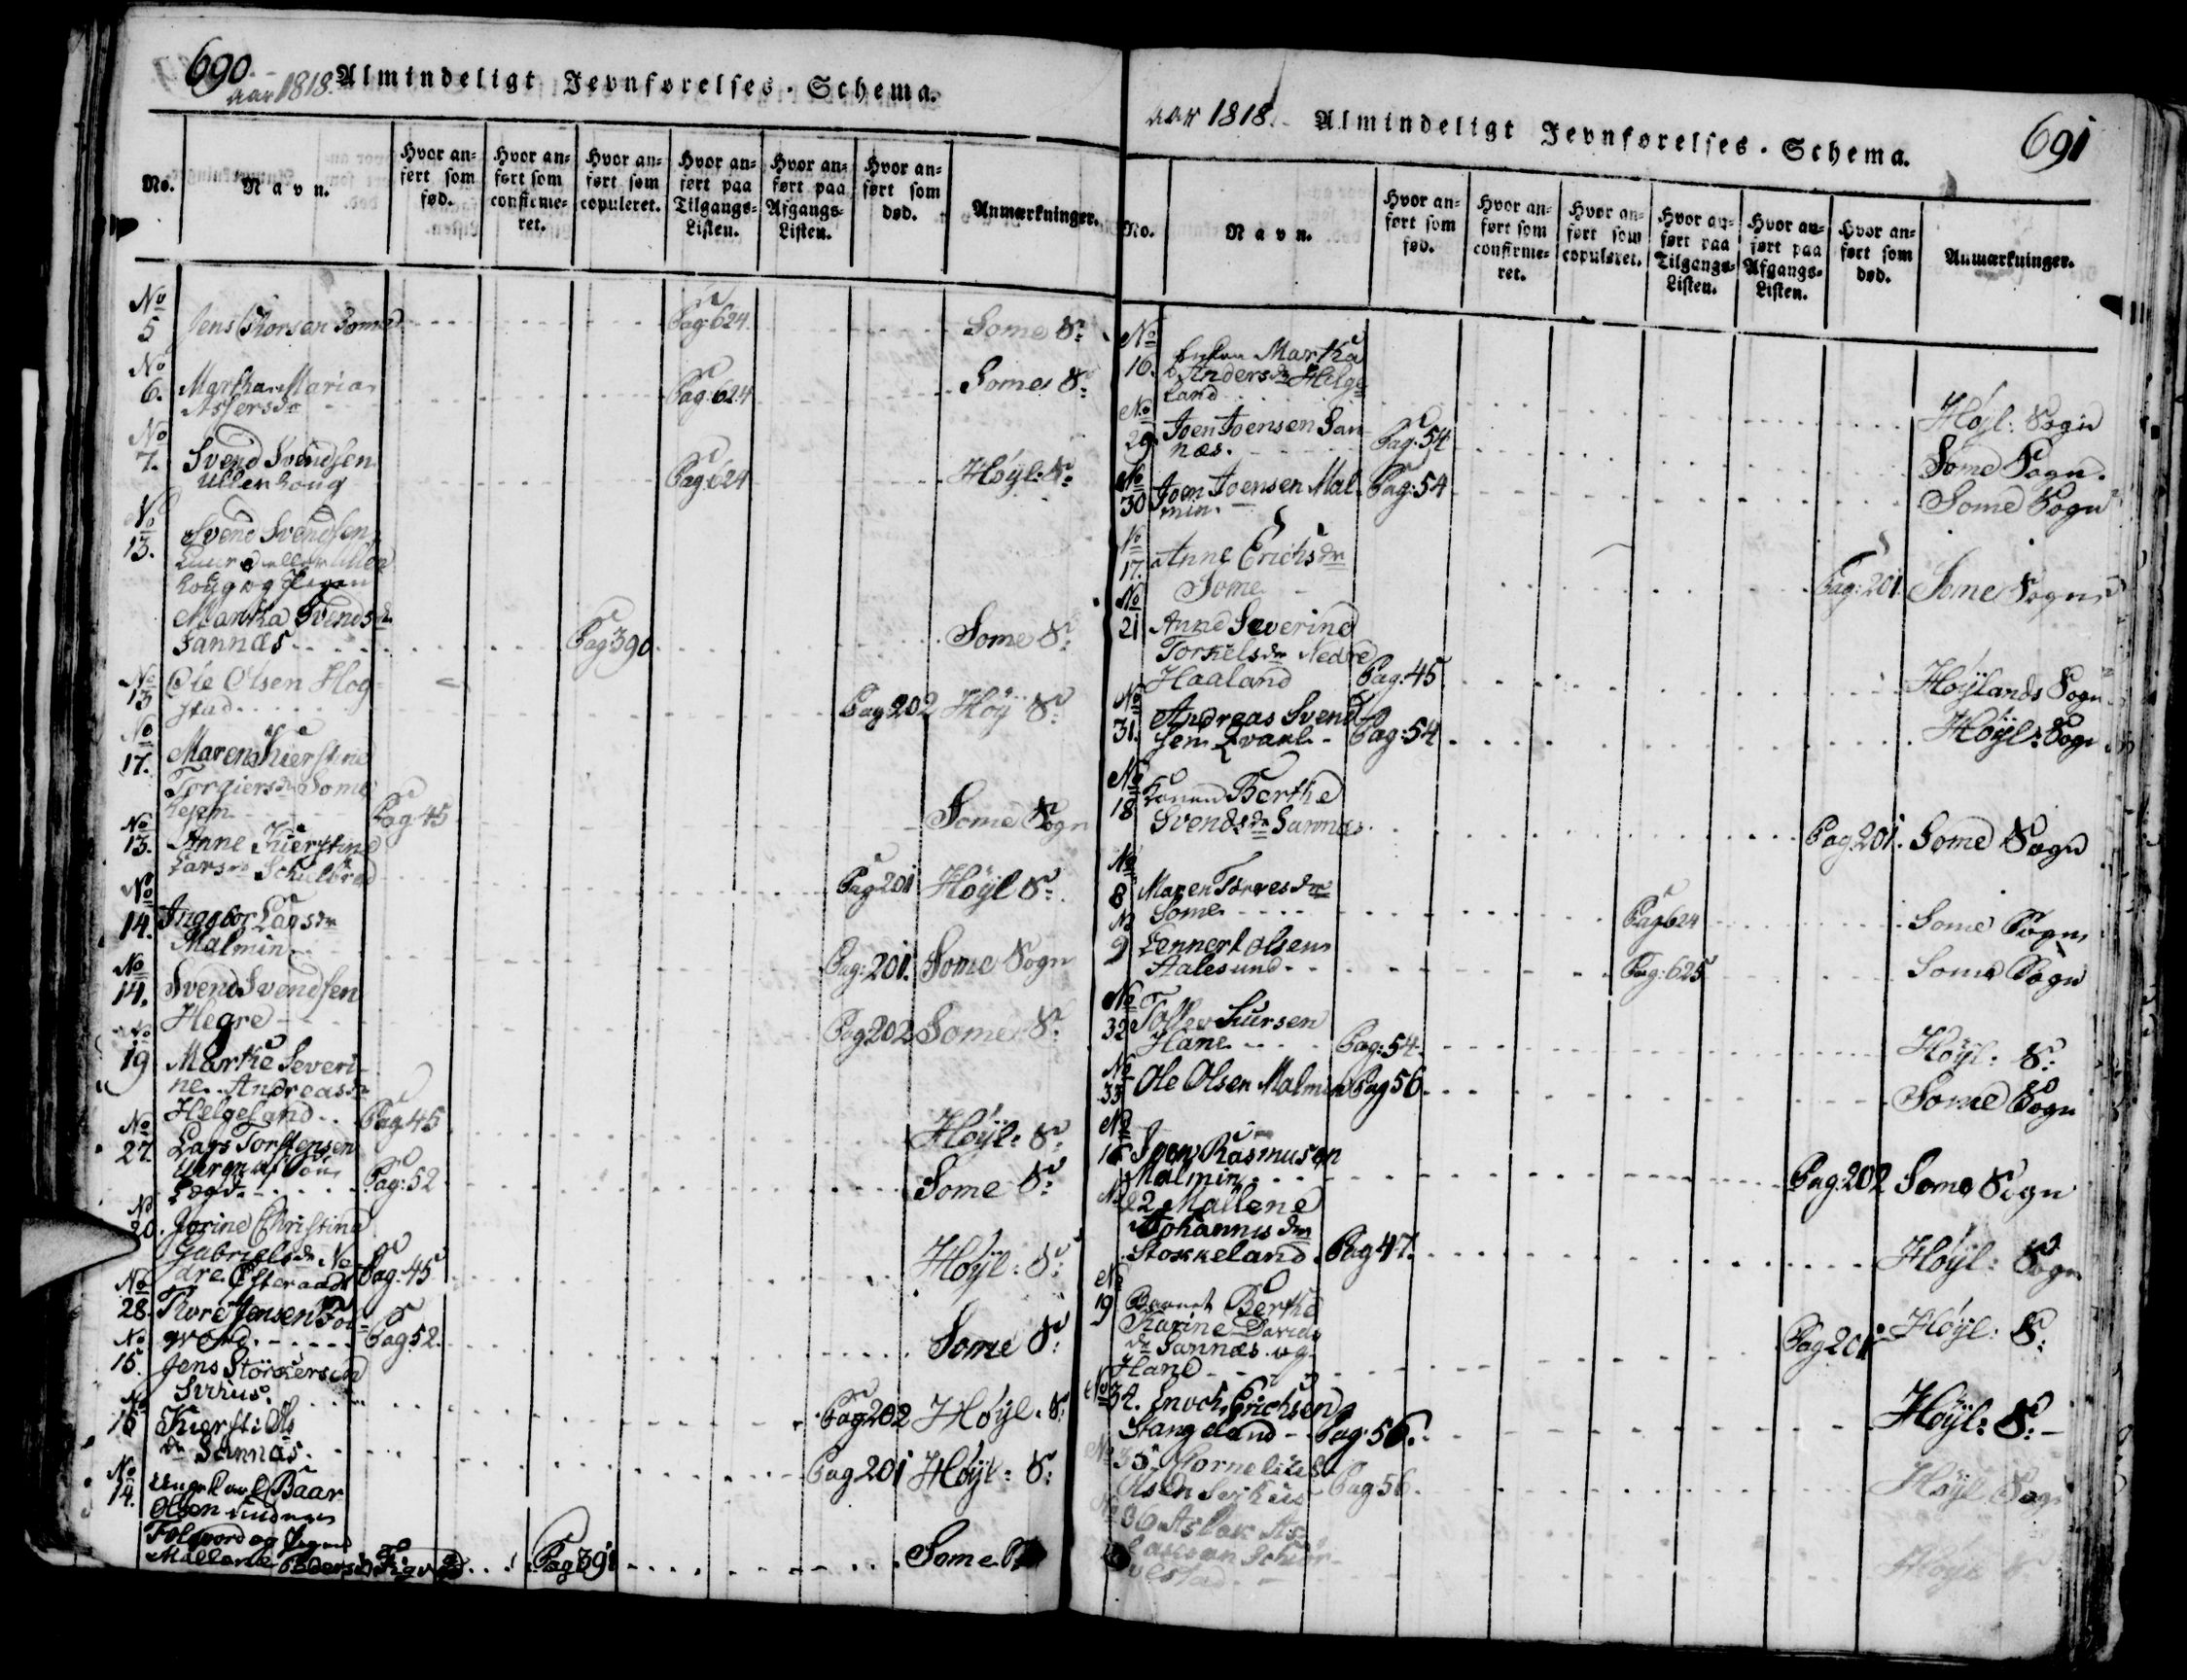 690
aar 1818. Almindeligt Jevnførelses-Schema.
No.
Navn.
Hvor an=
ført som
fød.
Hvor an=
ført som
confirme=
ret.
Hvor an=
ført som
copuleret.
Hvor an=
ført paa
Tilgangs=
Listen.
Hvor an=
ført paa
Afgangs=
Listen.
Hvor an=
ført som
død.
Anmærkninger.
No
5 Jens Thorsen Some Pag: 624 Some S:
No
6. Martha Maria
Assersdr Pag: 624 Some S:
No
7. Svend Svendsen
Ullenhoug Pag: 624 Höyl: S:
No
13. Svend Svendsen
Ullen
houg og Pigen
Martha Svendsdr
Sannæs Pag 390 Some S:
No
13 Ole Olsen Hog
stad Pag 202 Höy S:
No
17. Maren Kierstine
Torgiersdr Some
Pag 45 Some Sogn
No
13. Anne Kierstine
Larsdr Pag 201 Höyl S:
No
14. Ingebor Larsdr
Malmin Pag: 201. Some Sogn
No
14. Svend Svendsen
Hegre Pag 202 Some S:
No
19 Marthe Severi-
ne Andreasdr
Helgeland Pag 45 Höyl: S:
No
27. Lars Torstensen
Pag: 52 Some S:
No
20. Jorine Christine
Gabrielsdr Ne
dre Pag: 45 Höyl: S:
No
28. Thore Jensen Fol=
qvord Pag 52. Some S:
No
15. Jens Störkersen
Pag 202 Höyl. S:
No
15 Kiersti
dr Sannæs. Pag 201 Höyl: S:
No
14. Ungekarl Baar
Olsen
Folqvord og Pigen
Mallene Pedersdr Pag 391 Some S
aar 1818. Almindeligt Jevnførelses-Schema. 691
No.
Navn.
Hvor an=
ført som
fød.
Hvor an=
ført som
confirme=
ret.
Hvor an=
ført som
copuleret.
Hvor an=
ført paa
Tilgangs=
Listen.
Hvor an=
ført paa
Afgangs=
Listen.
Hvor an=
ført som
død.
Anmærkninger.
No
16. Enken Martha
Andersdr Helge
land Höyl: Sogn
No
29. Joen Joensen San
næs. Pag: 54 Some Sogn.
No
30 Joen Joensen Mal
min. Pag: 54 Some Sogn
No
17. Anne Erichsdr
Some Pag: 201. Some Sogn
No
21 Anne Severine
Torkelsdr Nedre
Haaland Pag: 45 Höylands Sogn
No
31. Andreas Svend
sen Pag: 54 Höyl: Sogn
No
18 Konen Berthe
Svendsdr Sannæs Pag 201. Some Sogn
No
8 Maren Torresdr
Some Pag 624 Some Sogn
No
9 Lennert Olsen
Aalesund Pag: 625 Some Sogn
No
32 Sursen
Hane Pag: 54 Höyl: S:
No
33 Ole Olsen Malmin Pag 56 Some Sogn
No
16 Joen Rasmusen
Malmin Pag: 202 Some Sogn
No 22 Mallene
Johannisdr
Stokkeland Pag 47. Höyl: Sogn
No
19 Barnet Berthe
Karine Davids
dr Sannæs og
Hane Pag 201 Höyl: S:
No 34. Enoch Erichsen
Stangeland Pag: 56. Höyl: S:
No 35. Cornelius
Olsen Pag 56. Höyl: Sogn
No 36 Aslak As-
Höyl S